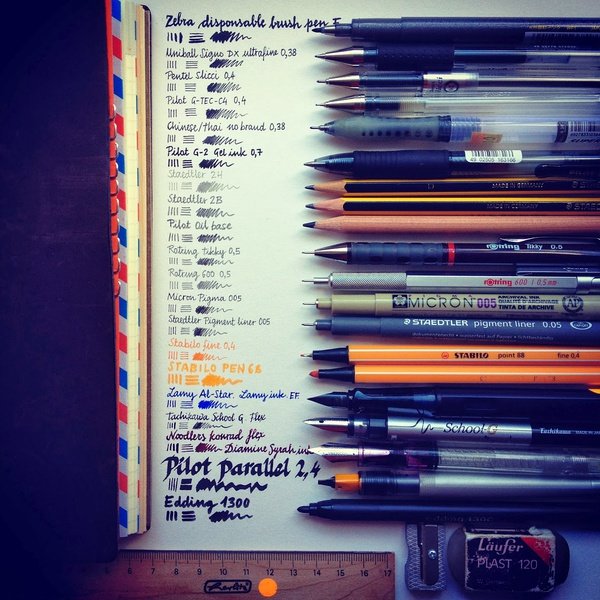 Zebra disposable brush pen F
Uniball Signo DX ultrafine 0,38
Pentel Slicci 0,4
Pilot G-TEC-C4 0,4
Chinese/thai no brand 0,38
Pilot G-2 Gel ink 0,7
49 02505 163166
Staedtler 2H
Staedtler 2B
IN GERMANY
IN GERMANY
Pilot Oil base
Rotring tikky 0,5
rotring Tikky 0.5
Rotring 600 0,5
rotring 600 I 0.5mm
Micron Pigma 005
MICRON 005 ARCHIVAL INK
TINTA DE ARCHIVE
Staedtler Pigment liner 005
STAEDTLER pigment liner 0.05
Stabilo fine 0,4
STABILO point 88 fine 0,4
STABILO PEN 68
Lamy Al-Star. Lamy ink EF
Tachikawa School G. Flex
School G Tachikawa
Noodlers konrad flex
Diamine Syrah ink
Pilot Parallel 2,4
Edding 1300
Läufer
PLAST 120
6 7 8 9 10 11 12 13 14 15 16 17